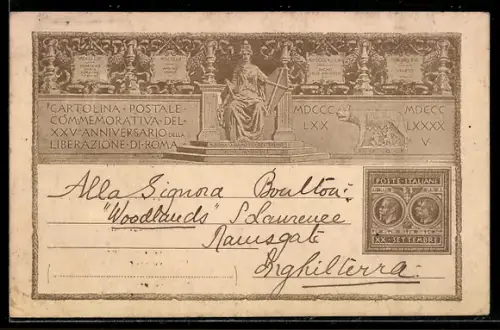 CARTOLINA · POSTALE
COMMEMORATIVA · DEL
XXV° ANNIVERSARIO DELLA
LIBERAZIONE · DI · ROMA
MDCCC
LXX
MDCCC
LXXXX
V
Alla Signora Boulton:
"Woodlands" S Laurence
Ramsgate
Inghilterra
POSTE · ITALIANE
XX · SETTEMBRE